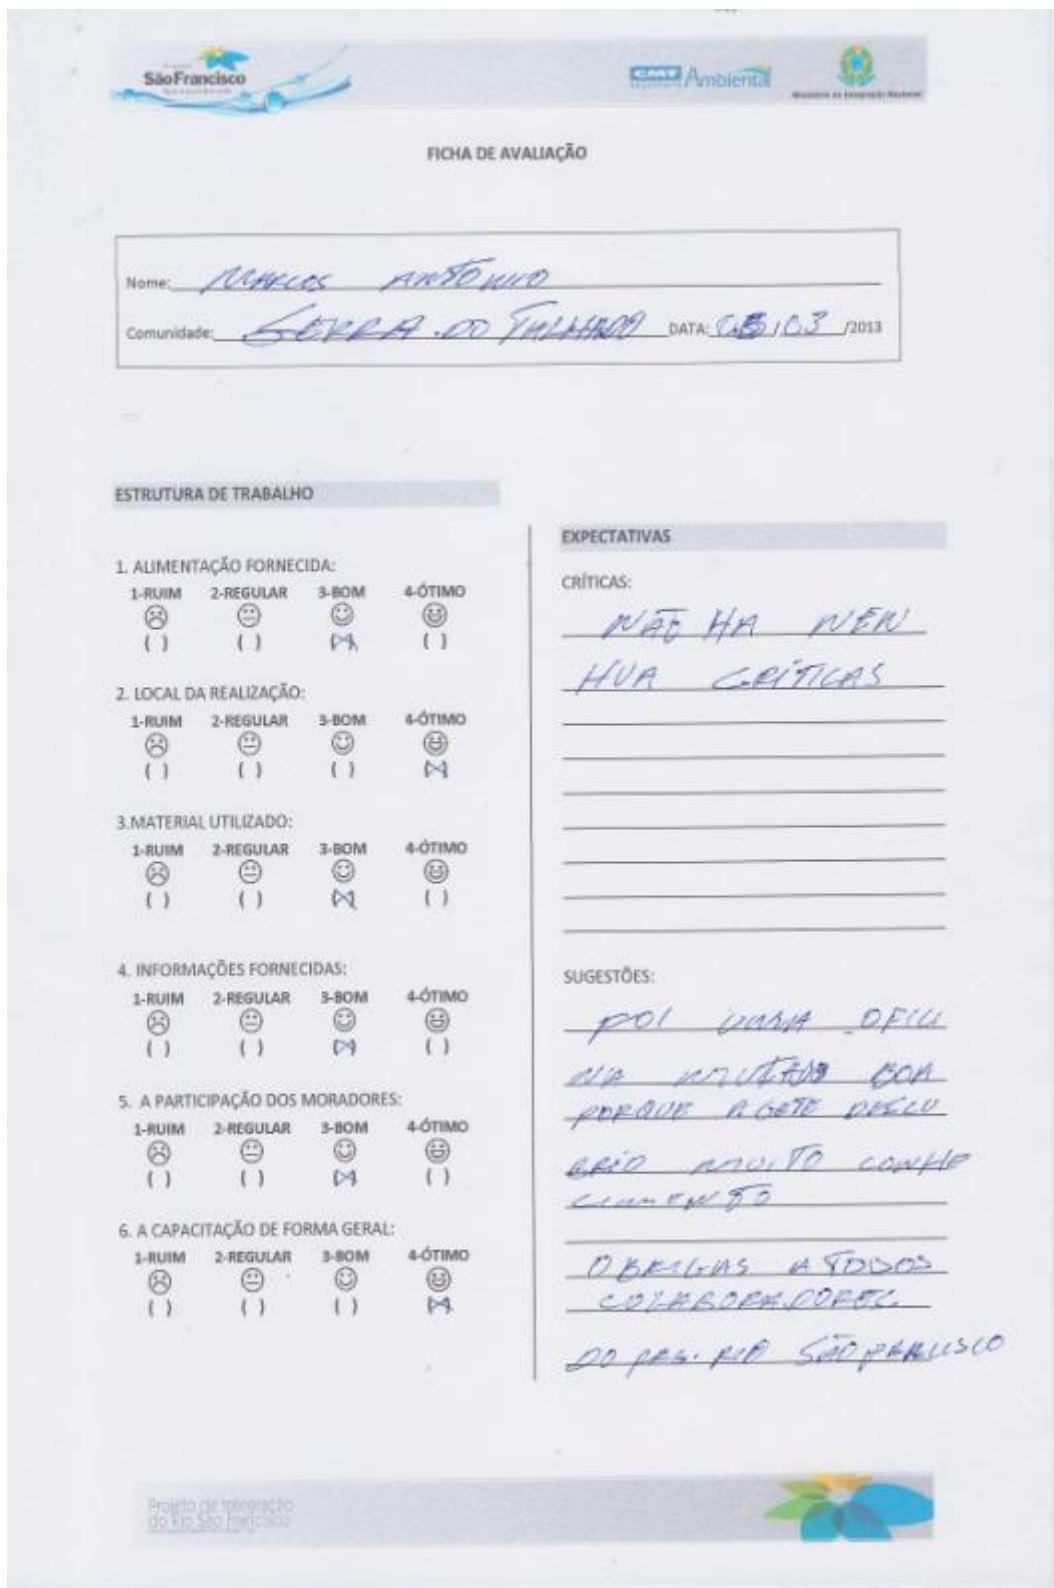 São Francisco
CMT Ambiental
Ministério da Integração Nacional
FICHA DE AVALIAÇÃO
Nome: MARCOS ANTONIO
Comunidade: SERRA.DO TALHADO DATA: 05/03/2013
ESTRUTURA DE TRABALHO
1. ALIMENTAÇÃO FORNECIDA:
1-RUIM 2-REGULAR 3-BOM 4-ÓTIMO
( ) ( ) (X) ( )
2. LOCAL DA REALIZAÇÃO:
1-RUIM 2-REGULAR 3-BOM 4-ÓTIMO
( ) ( ) ( ) (X)
3.MATERIAL UTILIZADO:
1-RUIM 2-REGULAR 3-BOM 4-ÓTIMO
( ) ( ) (X) ( )
4. INFORMAÇÕES FORNECIDAS:
1-RUIM 2-REGULAR 3-BOM 4-ÓTIMO
( ) ( ) (X) ( )
5. A PARTICIPAÇÃO DOS MORADORES:
1-RUIM 2-REGULAR 3-BOM 4-ÓTIMO
( ) ( ) (X) ( )
6. A CAPACITAÇÃO DE FORMA GERAL:
1-RUIM 2-REGULAR 3-BOM 4-ÓTIMO
( ) ( ) ( ) (X)
EXPECTATIVAS
CRÍTICAS:
NÃO HA NEN
HUA CRÍTICAS
SUGESTÕES:
FOI UMA OFICI
NA BOA
PORQUE A GETE DESCU
BRIO MUITO CONHE
CIMENTO
OBRIGAS A TODOS
COLABORADORES.
DO RIO SÃO
Projeto de Integração
do Rio São Francisco